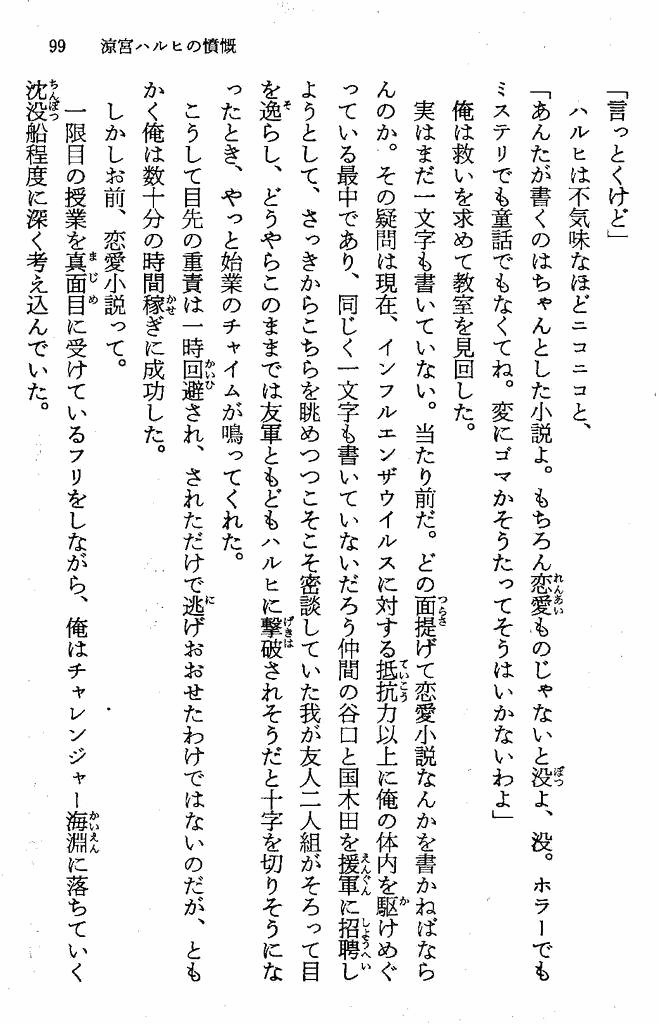 99　涼宮ハルヒの憤慨
「言っとくけど」
ハルヒは不気味なほどニコニコと、
「あんたが書くのはちゃんとした小説よ。もちろん恋愛ものじゃないと没よ、没。ホラーでも
ミステリでも童話でもなくてね。変にゴマかそうたってそうはいかないわよ」
俺は救いを求めて教室を見回した。
実はまだ一文字も書いていない。当たり前だ。どの面提げて恋愛小説なんかを書かねばなら
んのか。その疑問は現在、インフルエンザウイルスに対する抵抗力以上に俺の体内を駆けめぐ
っている最中であり、同じく一文字も書いていないだろう仲間の谷口と国木田を援軍に招聘し
ようとして、さっきからこちらを眺めつつこそこそ密談していた我が友人二人組がそろって目
を逸らし、どうやらこのままでは友軍ともどもハルヒに撃破されそうだと十字を切りそうにな
ったとき、やっと始業のチャイムが鳴ってくれた。
こうして目先の重責は一時回避され、されただけで逃げおおせたわけではないのだが、とも
かく俺は数十分の時間稼ぎに成功した。
しかしお前、恋愛小説って。
一限目の授業を真面目に受けているフリをしながら、俺はチャレンジャー海淵に落ちていく
沈没船程度に深く考え込んでいた。